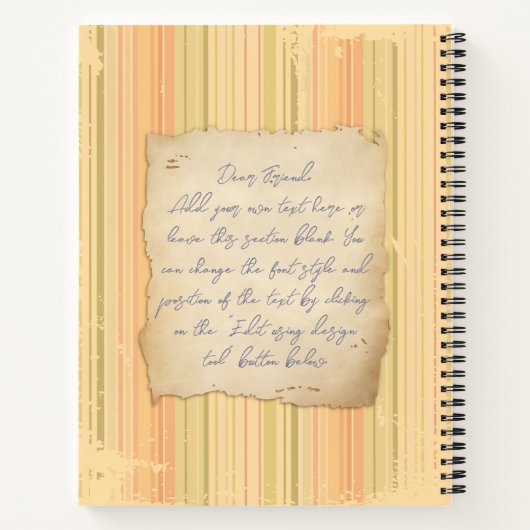 Dear Friend,
Add your own text here or
leave this section blank. You
can change the font style and
position of the text by clicking
on the "Edit using design
tool" button below